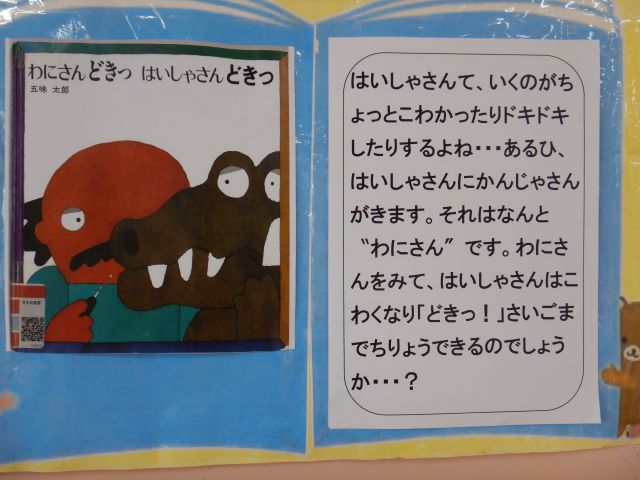 わにさんどきっ はいしゃさんどきっ
五味 太郎
はいしゃさんて、いくのがち
ょっとこわかったりドキドキ
したりするよね・・・あるひ、
はいしゃさんにかんじゃさん
がきます。それはなんと
〝わにさん〟です。わにさ
んをみて、はいしゃさんはこ
わくなり「どきっ！」さいごま
でちりょうできるのでしょう
か・・・？